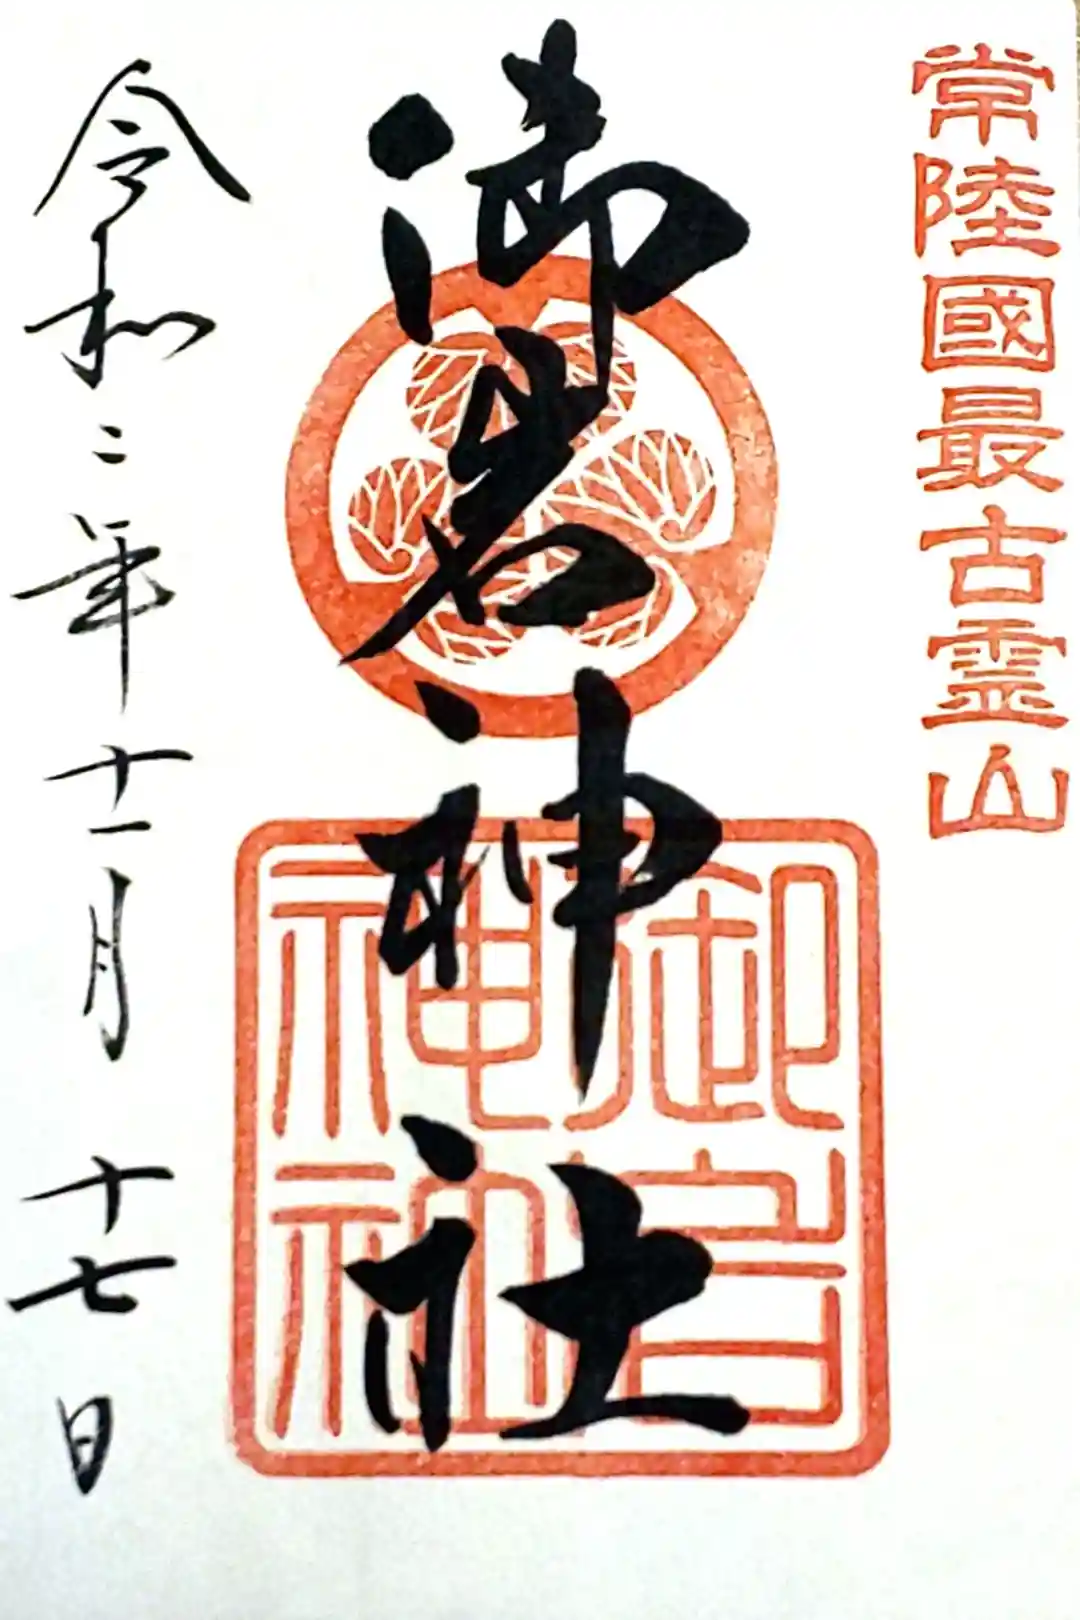 常陸國最古霊山
御岩神社
御岩
神社
令和二年十一月十七日